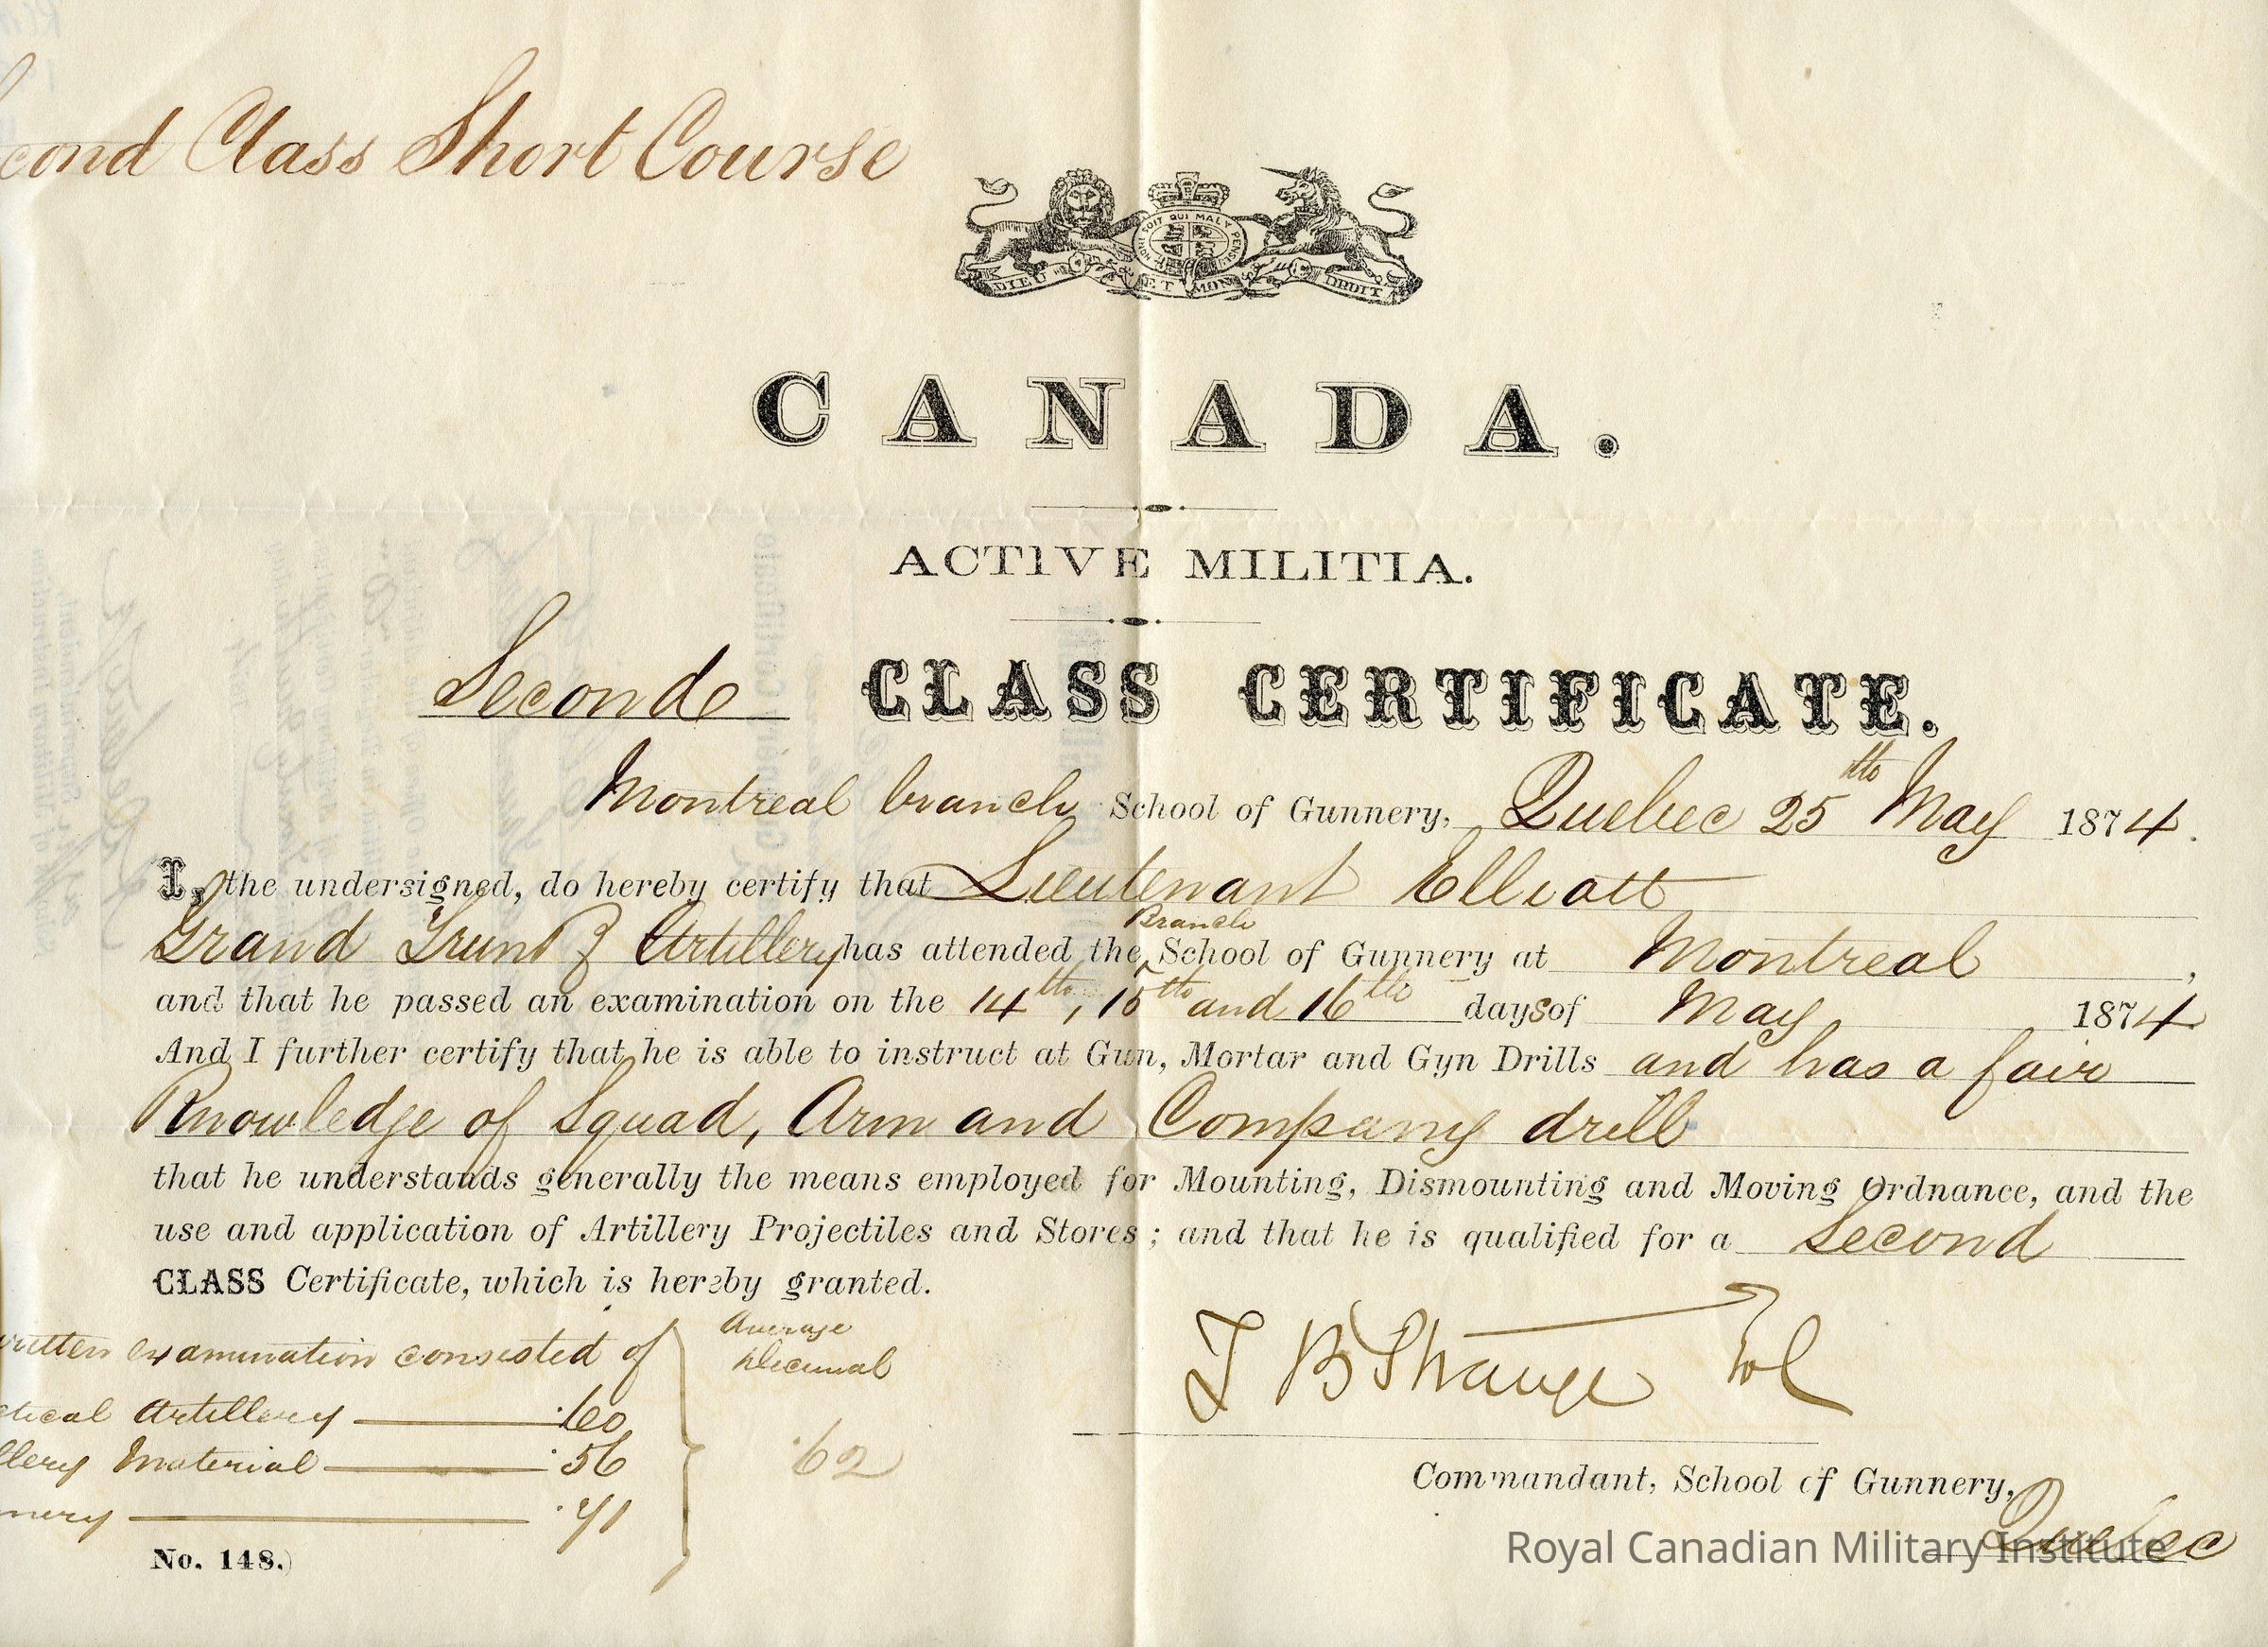 cond Class Short Course
HONI SOIT QUI MAL Y PENSE
DIEU ET MON DROIT
CANADA.
ACTIVE MILITIA.
Second CLASS CERTIFICATE.
Montreal branch School of Gunnery, Quebec 25th May 1874.
I, the undersigned, do hereby certify that Lieutenant Elliott
Branch
Grand Trunk Artillery has attended the School of Gunnery at Montreal,
and that he passed an examination on the 14th, 15th and 16th days of May 1874
And I further certify that he is able to instruct at Gun, Mortar and Gyn Drills and has a fair
Knowledge of Squad, Arm and Company drill
that he understands generally the means employed for Mounting, Dismounting and Moving Ordnance, and the
use and application of Artillery Projectiles and Stores; and that he is qualified for a Second
CLASS Certificate, which is hereby granted.
written examination consisted of
Average
Decimal
ctical Artillery .60
llery Material .56
nnery .71
.62
T B Strange Col
Commandant, School of Gunnery,
Quebec
No. 148.)
Royal Canadian Military Institute